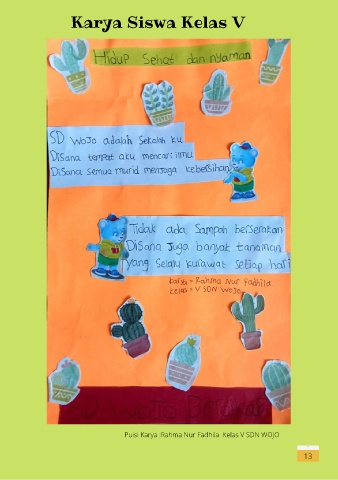 Karya Siswa Kelas V
Hidup Sehat dan nyaman
SD WOJO adalah Sekolah ku
Disana tempat aku mencari ilmu
Disana semua murid menjaga kebersihan
Tidak ada Sampah berserakan
Disana Juga banyak tanaman
yang Selalu kurawat setiap hari
karya = Rahma Nur Fadhila
kelas = V SDN WOJO
SD WOJO Bersinar
Puisi Karya :Rahma Nur Fadhila Kelas V SDN WOJO
13